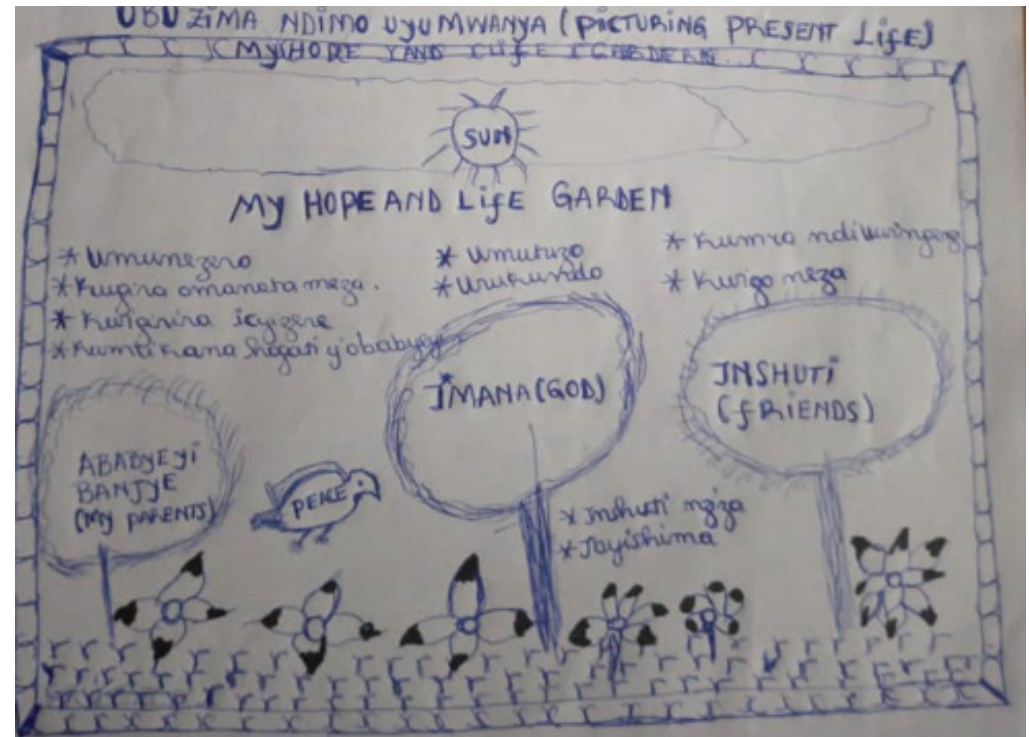 UBUZIMA NDIMO UYU MWANYA (PICTURING PRESENT LIFE)
MY HOPE AND LIFE
SUN
MY HOPE AND LIFE GARDEN
* Umunezero
* Kugira amanota meza.
* Kwigirira icyizere
* Umutuzo
* Urukundo
* Kumva ndi
* Kwiga neza
IMANA (GOD)
INSHUTI
(FRIENDS)
ABABYEYI
BANJYE
(MY PARENTS)
PEACE
* Inshuti nziza